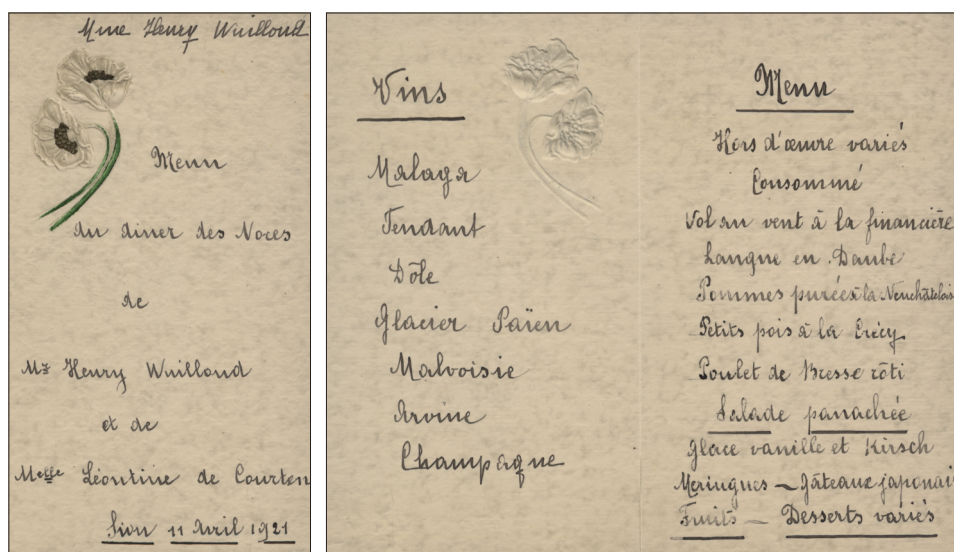 Mme Henry Wuilloud
Menu
du diner des Noces
de
Mr Henry Wuilloud
et de
Melle Léontine de Courten
Sion 11 Avril 1921
Vins
Malaga
Fendant
Dôle
Glacier Païen
Malvoisie
Arvine
Champagne
Menu
Hors d'œuvre variés
Consommé
Vol au vent à la financière
Langue en Daube
Pommes purées à la Neuchâtelois
Petits pois à la Crécy
Poulet de Bresse rôti
Salade panachée
Glace vanille et Kirsch
Meringues — Gâteaux japonais
Fruits — Desserts variés